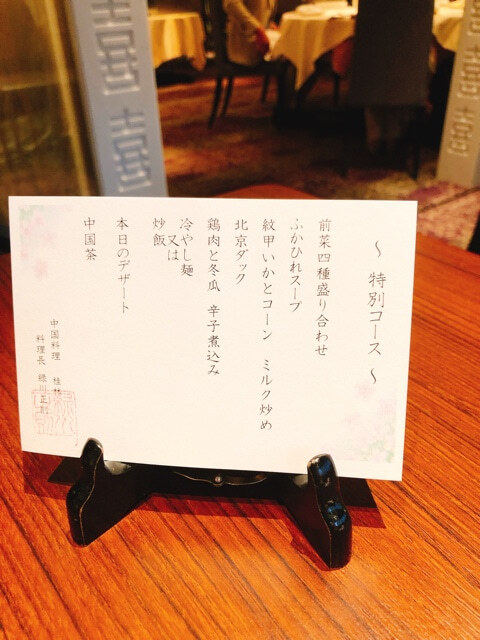 ～ 特別コース ～
前菜四種盛り合わせ
ふかひれスープ
紋甲いかとコーン ミルク炒め
北京ダック
鶏肉と冬瓜 辛子煮込み
冷やし麺
又は
炒飯
本日のデザート
中国茶
中国料理 桂林
料理長